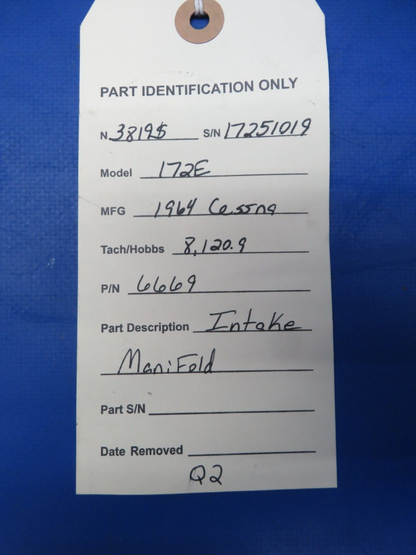 PART IDENTIFICATION ONLY
N 3819S S/N 17251019
Model 172E
MFG 1964 Cessna
Tach/Hobbs 8,120.9
P/N 6669
Part Description Intake
Manifold
Part S/N
Date Removed
Q2